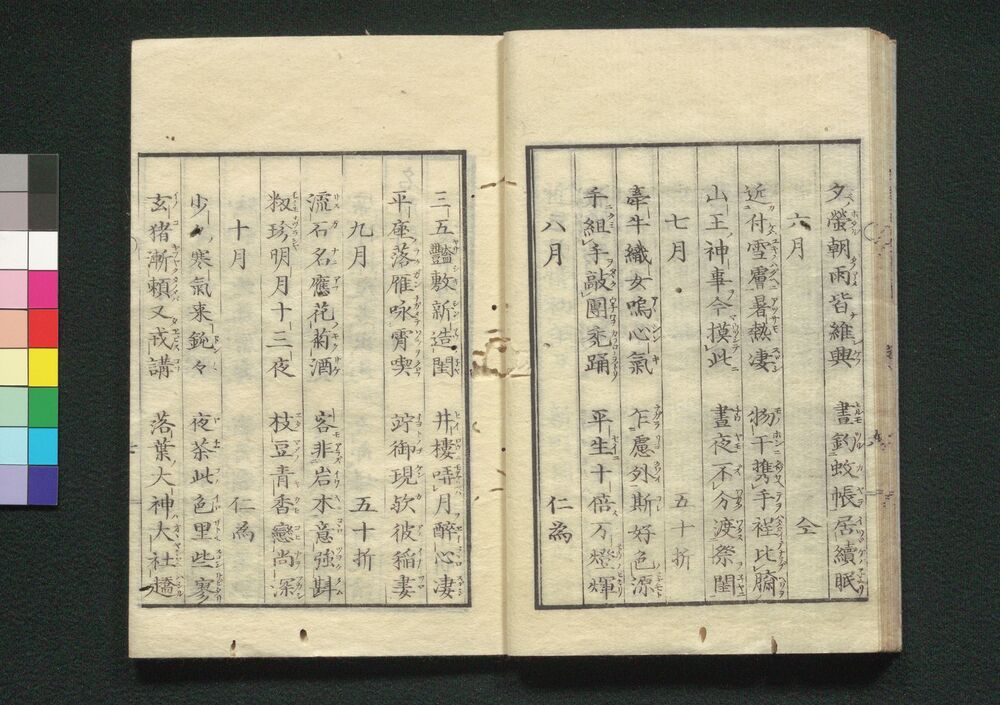 夕螢朝雨皆維興 晝釣蚊帳居續眠
六月 仝
近付雪膚暑熱凄 物干携手裎比臍
山王神事今摸此 晝夜不分渡祭閨
七月 五十折
牽牛織女嗚心氣 乍慮外斯好色源
千組手敲團禿踊 平生十倍万燈輝
八月 仁為
三五豔敷新造閨 井樓哢月醉心凄
平座落雁咏霄喫 跨御現欤彼稲妻
九月 五十折
流石名應花菊酒 客非岩木意強斟
珍明月十三夜 枝豆青香戀尚深
十月 仁為
少々寒氣来鈍々 夜茶此色里些寥
玄猪漸頼又戎講 落葉大神大社